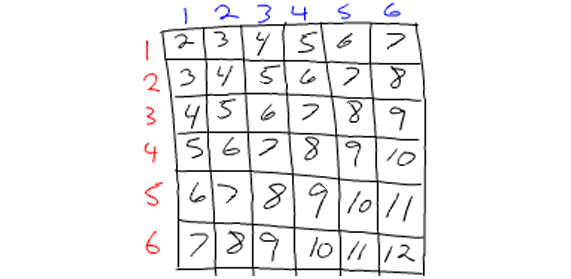 1 2 3 4 5 6
1 2 3 4 5 6 7
2 3 4 5 6 7 8
3 4 5 6 7 8 9
4 5 6 7 8 9 10
5 6 7 8 9 10 11
6 7 8 9 10 11 12